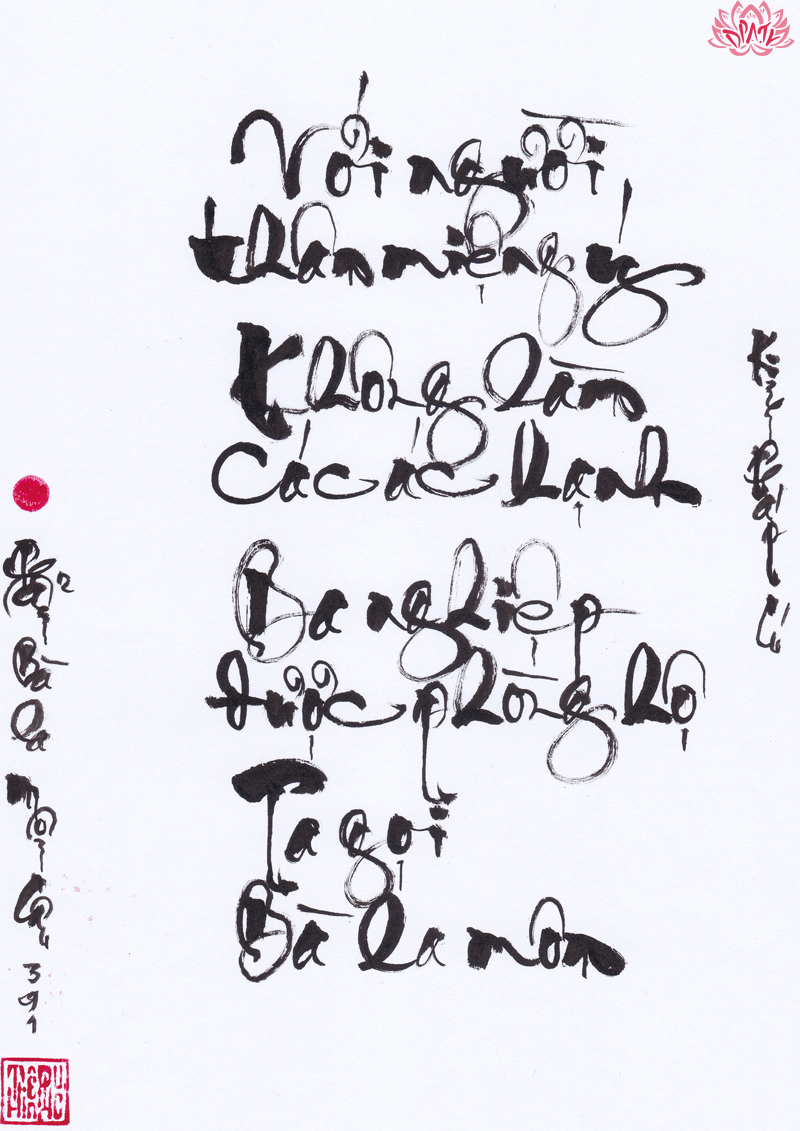 Với người
thân miệng ý
Không làm
Các ác hạnh
Ba nghiệp
được phòng hộ
Ta gọi
Bà la môn
Kinh Pháp Cú
Phẩm
Bà
la
môn
Câu
391